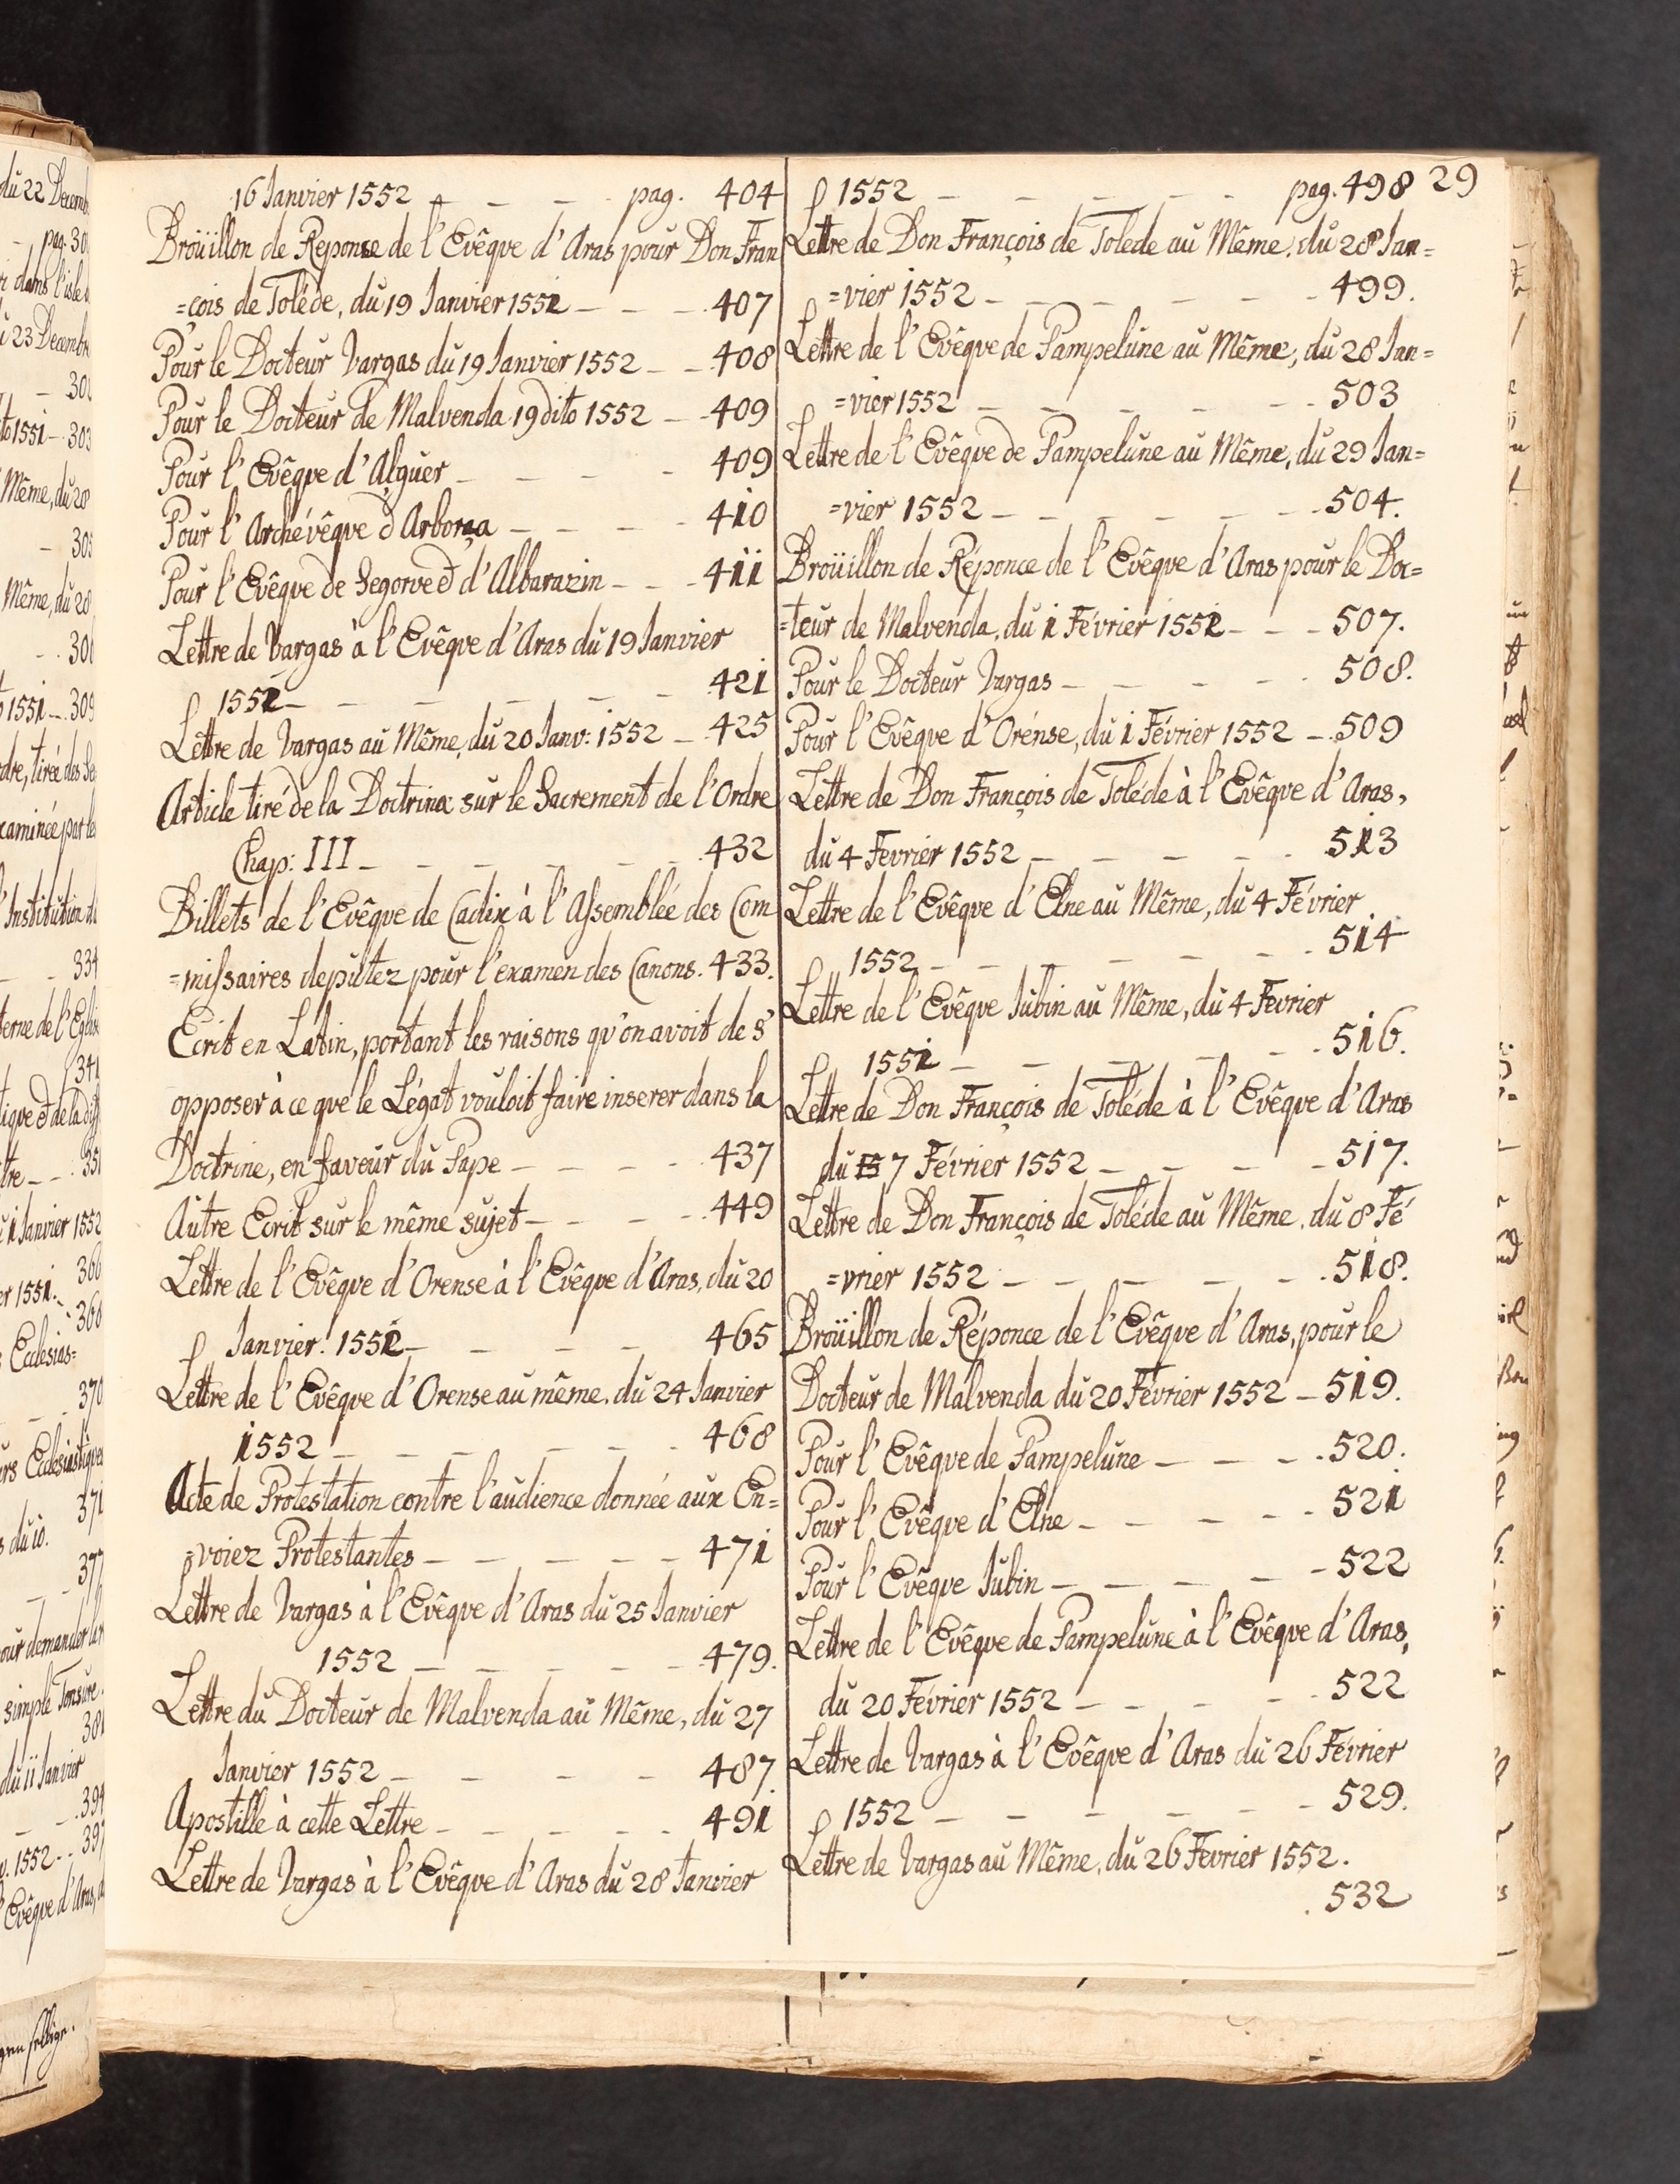 16 Janvier 1552 _ _ _ pag. 404
Broüillon de Reponse de l'Evêqve d'Aras pour Don Fran
=çois de Toléde, du 19 Janvier 1552 _ _ _ 407
Pour le Docteur Vargas du 19 Janvier 1552 _ _ 408
Pour le Docteur de Malvenda 19 dito 1552 _ 409
Pour l'Evêqve d'Alguer _ _ _ _ 409
Pour l'Archévêqve d'Arborea _ _ _ _ 410
Pour l'Evêqve de Segorve & d'Albarazin _ _ _ 411
Lettre de Vargas à l'Evêqve d'Aras du 19 Janvier
1552 _ _ _ _ _ _ 421
Lettre de Vargas au Même, du 20 Janv: 1552 _ 425
Article tiré de la Doctrina sur le Sacrement de l'Ordre
Chap: III _ _ _ _ _ _ 432
Billets de l'Evêqve de Cadix à l'Assemblée des Com
=missaires deputez pour l'examen des Canons. 433.
Ecrit en Latin, portant les raisons qv'on avoit de s'
opposer à ce qve le Légat vouloit faire inserer dans la
Doctrine, en faveur du Pape _ _ _ _ 437
Autre Ecrit sur le même sujet _ _ _ _ 449
Lettre de l'Evêqve d'Orense à l'Evêqve d'Aras, du 20
Janvier. 1552 _ _ _ _ _ 465
Lettre de l'Evêqve d'Orense au même. du 24 Janvier
1552 _ _ _ _ _ _ 468
Acte de Protestation contre l'audience donnée aux En=
=voiez Protestantes _ _ _ _ _ 471
Lettre de Vargas à l'Evêqve d'Aras du 25 Janvier
1552 _ _ _ _ _ _ 479.
Lettre du Docteur de Malvenda au Même, du 27
Janvier 1552 _ _ _ _ 487.
Apostille à cette Lettre _ _ _ _ _ 491
Lettre de Vargas à l'Evêqve d'Aras du 28 Janvier
29
1552 _ _ _ _ _ pag. 498
Lettre de Don François de Tolede au Même. du 28 Jan=
=vier 1552 _ _ _ _ _ _ 499.
Lettre de l'Evêqve de Pampelune au Même, du 28 Jan=
=vier 1552 _ _ _ _ _ _ 503
Lettre de l'Evêqve de Pampelune au Même, du 29 Jan=
=vier 1552 _ _ _ _ _ _ 504.
Broüillon de Réponce de l'Evêqve d'Aras pour le Doc=
=teur de Malvenda, du 1 Février 1552 _ _ _ 507.
Pour le Docteur Vargas _ _ _ _ _ 508.
Pour l'Evêqve d'Orénse, du 1 Février 1552 _ 509
Lettre de Don François de Toléde à l'Evêqve d'Aras,
du 4 Fevrier 1552 _ _ _ _ _ 513
Lettre de l'Evêqve d'Elne au Même, du 4 Février
1552 _ _ _ _ _ _ 514
Lettre de l'Evêqve Jubin au Même, du 4 Fevrier
1552 _ _ _ _ _ _ 516.
Lettre de Don François de Toléde à l'Evêqve d'Aras
du 7 Février 1552 _ _ _ _ 517.
Lettre de Don François de Toléde au Même. du 8 Fé
=vrier 1552 _ _ _ _ _ _ 518.
Broüillon de Réponce de l'Evêqve d'Aras, pour le
Docteur de Malvenda du 20 Février 1552 _ 519.
Pour l'Evêqve de Pampelune _ _ _ 520.
Pour l'Evêqve d'Elne _ _ _ _ _ 521
Pour l'Evêqve Jubin _ _ _ _ _ 522
Lettre de l'Evêqve de Pampelune à l'Evêqve d'Aras,
du 20 Février 1552 _ _ _ _ _ 522
Lettre de Vargas à l'Evêqve d'Aras du 26 Février
1552 _ _ _ _ _ _ 529.
Lettre de Vargas au Même, du 26 Fevrier 1552.
532